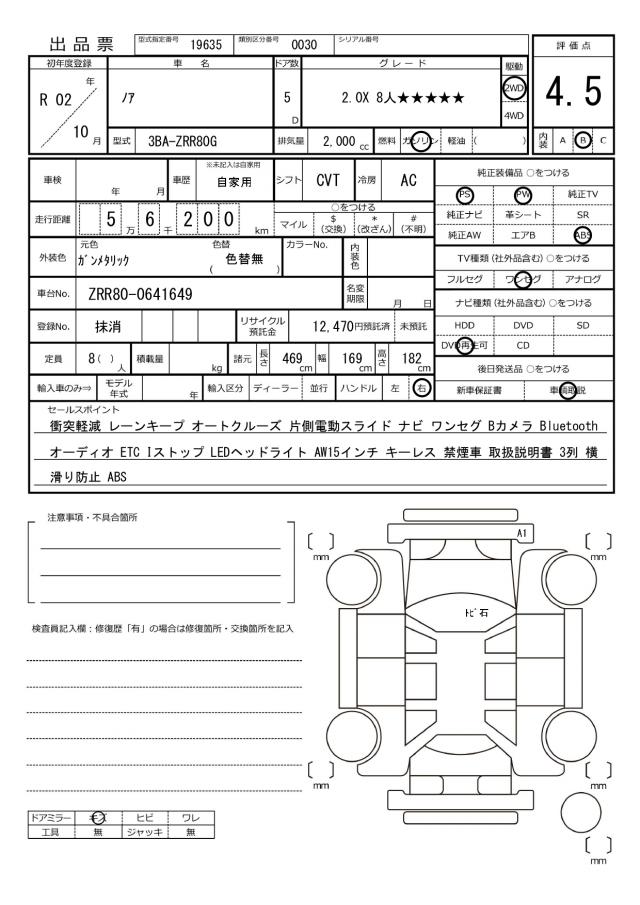 出品票 型式指定番号 19635 類別区分番号 0030 シリアル番号
評価点
4.5
内装 A B C
初年度登録 車名 ドア数 グレード 駆動
R 02 年 / 10 月 ノア 5 D 2.0X 8人★★★★★ 2WD 4WD
型式 3BA-ZRR80G 排気量 2,000 cc 燃料 ガソリン 軽油 ( )
車検 年 月 車歴 ※未記入は自家用 自家用 シフト CVT 冷房 AC
走行距離 5 万 6 千 2 0 0 km ○をつける
マイル $ (交換) * (改ざん) # (不明)
外装色 元色 ガンメタリック 色替 ( 色替無 ) カラーNo. 内装色
車台No. ZRR80-0641649 名変期限 月 日
登録No. 抹消 リサイクル預託金 12,470円預託済 未預託
定員 8 ( ) 人 積載量 kg 諸元 長さ 469 cm 幅 169 cm 高さ 182 cm
輸入車のみ⇒ モデル年式 年 輸入区分 ディーラー 並行 ハンドル 左 右
純正装備品 ○をつける
PS PW 純正TV
純正ナビ 革シート SR
純正AW エアB ABS
TV種類 (社外品含む) ○をつける
フルセグ ワンセグ アナログ
ナビ種類 (社外品含む) ○をつける
HDD DVD SD
DVD再生可 CD
後日発送品 ○をつける
新車保証書 車輌取説
セールスポイント
衝突軽減 レーンキープ オートクルーズ 片側電動スライド ナビ ワンセグ Bカメラ Bluetooth
オーディオ ETC Iストップ LEDヘッドライト AW15インチ キーレス 禁煙車 取扱説明書 3列 横
滑り防止 ABS
注意事項・不具合箇所
検査員記入欄：修復歴「有」の場合は修復箇所・交換箇所を記入
A1
[ ] mm [ ] mm
トビ石
[ ] mm [ ] mm
[ ] mm
ドアミラー キズ ヒビ ワレ
工具 無 ジャッキ 無